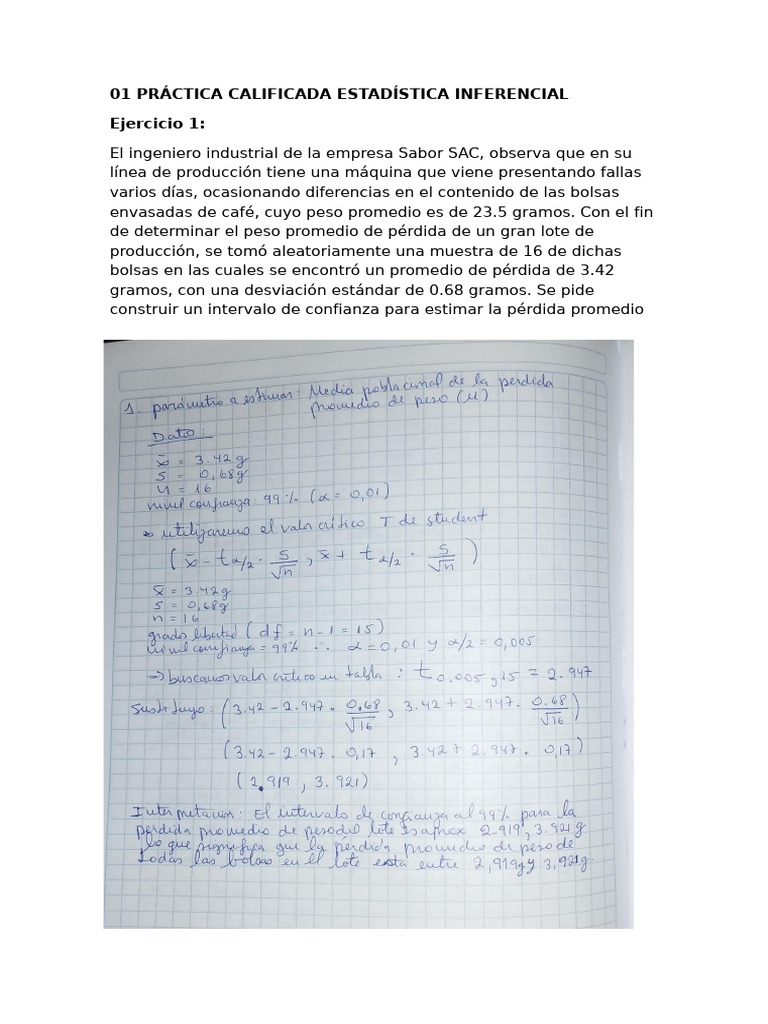 01 PRÁCTICA CALIFICADA ESTADÍSTICA INFERENCIAL
Ejercicio 1:
El ingeniero industrial de la empresa Sabor SAC, observa que en su
línea de producción tiene una máquina que viene presentando fallas
varios días, ocasionando diferencias en el contenido de las bolsas
envasadas de café, cuyo peso promedio es de 23.5 gramos. Con el fin
de determinar el peso promedio de pérdida de un gran lote de
producción, se tomó aleatoriamente una muestra de 16 de dichas
bolsas en las cuales se encontró un promedio de pérdida de 3.42
gramos, con una desviación estándar de 0.68 gramos. Se pide
construir un intervalo de confianza para estimar la pérdida promedio
1. parámetro a estimar: Media poblacional de la perdida
promedio de peso (μ)
Datos:
x̄ = 3.42 g
s = 0,68g
n = 16
nivel confianza: 99% (α = 0,01)
utilizaremos el valor crítico T de student
(x̄ - t α/2 · S/√n , x̄ + t α/2 · S/√n)
x̄ = 3.42g
s = 0,68g
n = 16
grados libertad (df = n-1 = 15)
nivel confianza = 99% ∴ α = 0,01 y α/2 = 0,005
→ buscamos valor crítico en tabla : t 0.005, 15 = 2.947
Sustituyo: (3.42 - 2.947 · 0.68/√16 , 3.42 + 2.947 · 0.68/√16)
(3.42 - 2.947 · 0,17 , 3.42 + 2.947 · 0,17)
(2,919 , 3.921)
Interpretación: El intervalo de confianza al 99% para la
perdida promedio de peso del lote es aprox 2.919, 3.921 g
lo que significa que la pérdida promedio de peso de
todas las bolsas en el lote esta entre 2,919g y 3,921g.